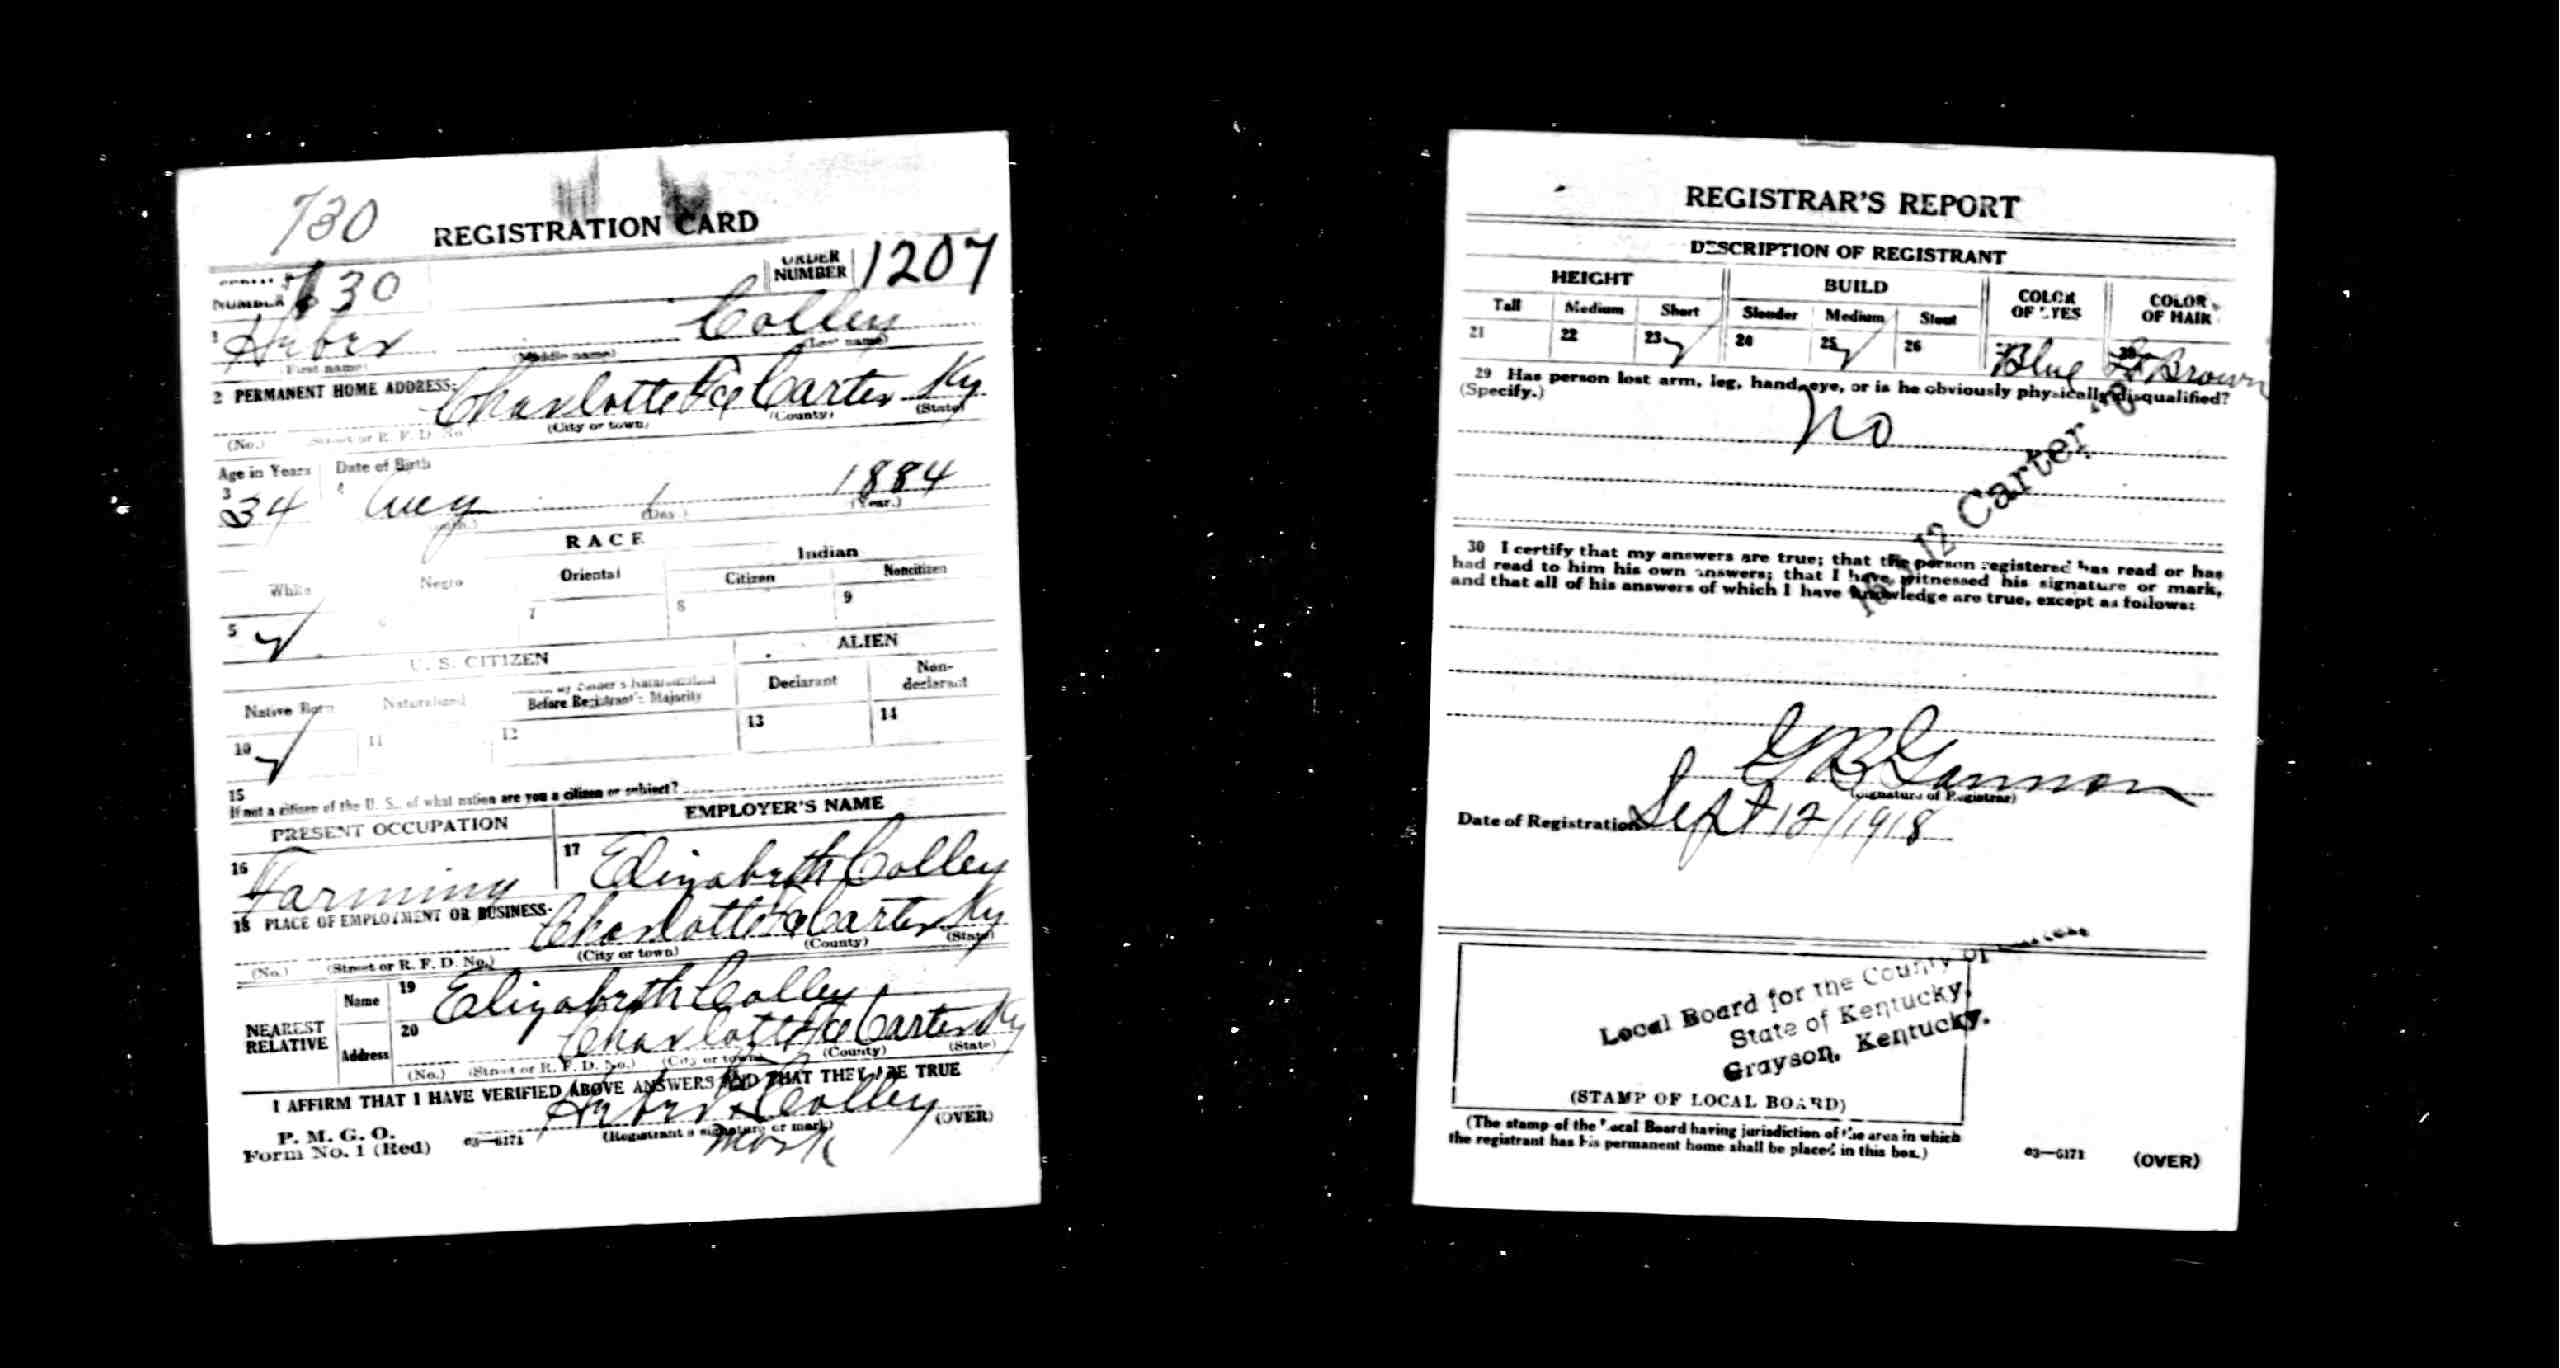 730
REGISTRATION CARD
NUMBER 730 ORDER NUMBER 1207
1 Colley
(First name) (Middle name) (Last name)
2 PERMANENT HOME ADDRESS:
Charlotte Fce Carter Ky
(No.) (Street or R. F. D. No.) (City or town) (County) (State)
Age in Years Date of Birth
3 34 4 Aug 1 1884
(Month.) (Day.) (Year.)
RACE
White Negro Oriental Indian
Citizen Noncitizen
5 ✓ 6 7 8 9
U. S. CITIZEN ALIEN
Native Born Naturalized Citizen by Father's Naturalization Before Registrant's Majority Declarant Non-declarant
10 ✓ 11 12 13 14
15
If not a citizen of the U. S., of what nation are you a citizen or subject?
PRESENT OCCUPATION EMPLOYER'S NAME
16 Farming 17 Elizabeth Colley
18 PLACE OF EMPLOYMENT OR BUSINESS:
Charlotte Fce Carter Ky
(No.) (Street or R. F. D. No.) (City or town) (County) (State)
NEAREST RELATIVE
Name 19 Elizabeth Colley
Address 20 Charlotte Fce Carter Ky
(No.) (Street or R. F. D. No.) (City or town) (County) (State)
I AFFIRM THAT I HAVE VERIFIED ABOVE ANSWERS AND THAT THEY ARE TRUE
P. M. G. O.
Form No. 1 (Red) 03—6171 x Colley
(Registrant's signature or mark) (OVER)
mark
REGISTRAR'S REPORT
DESCRIPTION OF REGISTRANT
HEIGHT BUILD COLOR OF EYES COLOR OF HAIR
Tall Medium Short Slender Medium Stout
21 22 23 ✓ 24 25 ✓ 26 27 Blue 28 Lt Brown
29 Has person lost arm, leg, hand, eye, or is he obviously physically disqualified?
(Specify.)
No
12 Carter
30 I certify that my answers are true; that the person registered has read or has
had read to him his own answers; that I have witnessed his signature or mark,
and that all of his answers of which I have knowledge are true, except as follows:
G B Gannon
(Signature of Registrar)
Date of Registration Sept 12/1918
Local Board for the County of Carter
State of Kentucky.
Grayson, Kentucky.
(STAMP OF LOCAL BOARD)
(The stamp of the Local Board having jurisdiction of the area in which
the registrant has his permanent home shall be placed in this box.)
03—6171 (OVER)